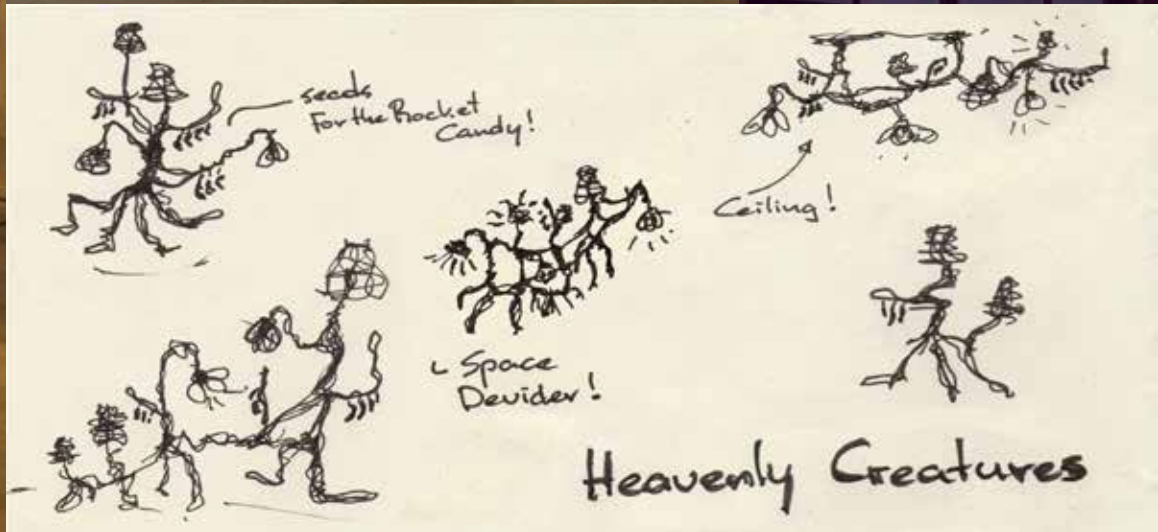 seeds
For the Rocket
Candy!
Ceiling!
Space
Devider!
Heavenly Creatures